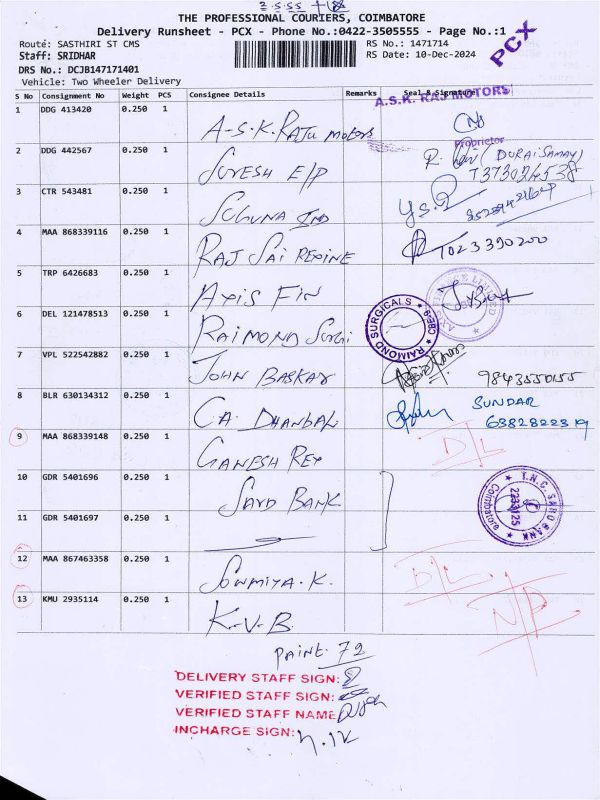 THE PROFESSIONAL COURIERS, COIMBATORE
Delivery Runsheet - PCX - Phone No.:0422-3505555 - Page No.:1
PCX
Route: SASTHIRI ST CMS
RS No.: 1471714
Staff: SRIDHAR
RS Date: 10-Dec-2024
DRS No.: DCJB147171401
Vehicle: Two Wheeler Delivery
S No Consignment No Weight PCS Consignee Details Remarks Seal & Signature
A.S.K. RAJ MOTORS
1 DDG 413420 0.250 1 A-S.K.RAJU MOTORS
Proprietor
2 DDG 442567 0.250 1 SURESH E/P (DURAISAMAY)
3 CTR 543481 0.250 1 SUGUNA IND
4 MAA 868339116 0.250 1 RAJ SAI REXINE T023390200
5 TRP 6426683 0.250 1 AXIS FIN
6 DEL 121478513 0.250 1 RAIMOND
RAIMOND SURGICALS
7 VPL 522542882 0.250 1 JOHN BASKAR
8 BLR 630134312 0.250 1 CA. DHANBAL SUNDAR
6382822319
9 MAA 868339148 0.250 1 GANESH REX D/L
10 GDR 5401696 0.250 1 SARD BANK
T.N.C. SARO BANK
Coimbatore
11 GDR 5401697 0.250 1
12 MAA 867463358 0.250 1 SOWMIYA.K. D/L
13 KMU 2935114 0.250 1 K.V.B N/P
PAINT. 72
DELIVERY STAFF SIGN:
VERIFIED STAFF SIGN:
VERIFIED STAFF NAME
INCHARGE SIGN: